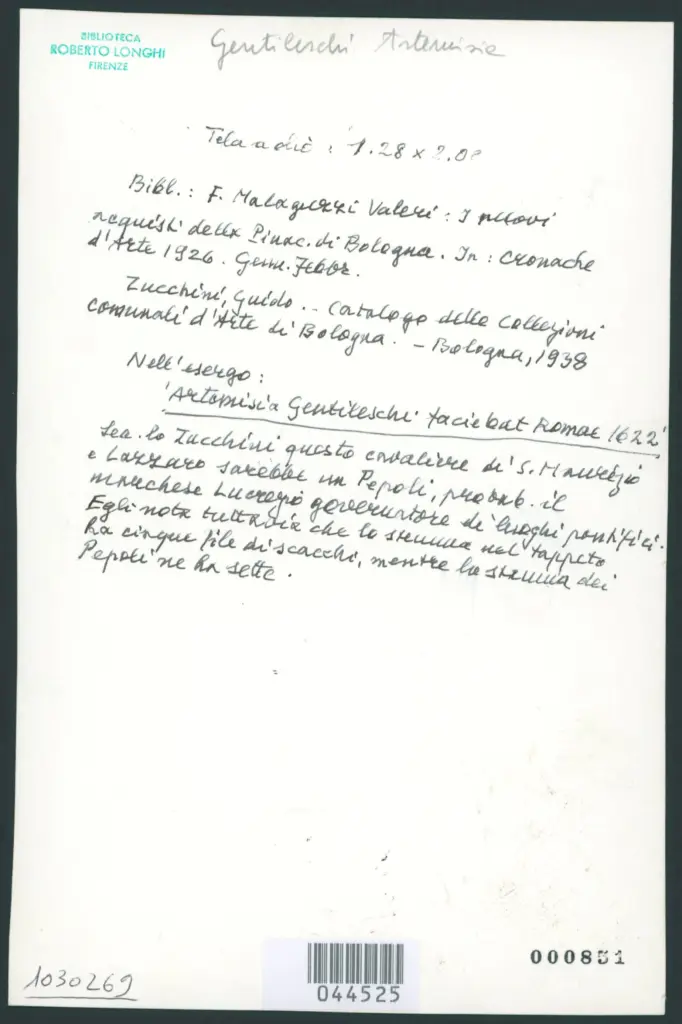 BIBLIOTECA
ROBERTO LONGHI
FIRENZE
Gentileschi Artemisia
Tela a olio : 1.28 x 2.08
Bibl.: F. Malaguzzi Valeri : I nuovi
acquisti della Pinac. di Bologna. In : Cronache
d'Arte 1926. Genn. Febbr.
Zucchini, Guido .- Catalogo delle Collezioni
comunali d'Arte di Bologna. - Bologna, 1938
Nell'esergo :
'Artemisia Gentileschi faciebat Romae 1622'
Sec. lo Zucchini questo cavaliere di S. Maurizio
e Lazzaro sarebbe un Pepoli, probab. il
marchese Lucrezio governatore di luoghi pontifici.
Egli nota tuttavia che lo stemma nel tappeto
ha cinque file di scacchi, mentre lo stemma dei
Pepoli ne ha sette.
1030269
044525
000851